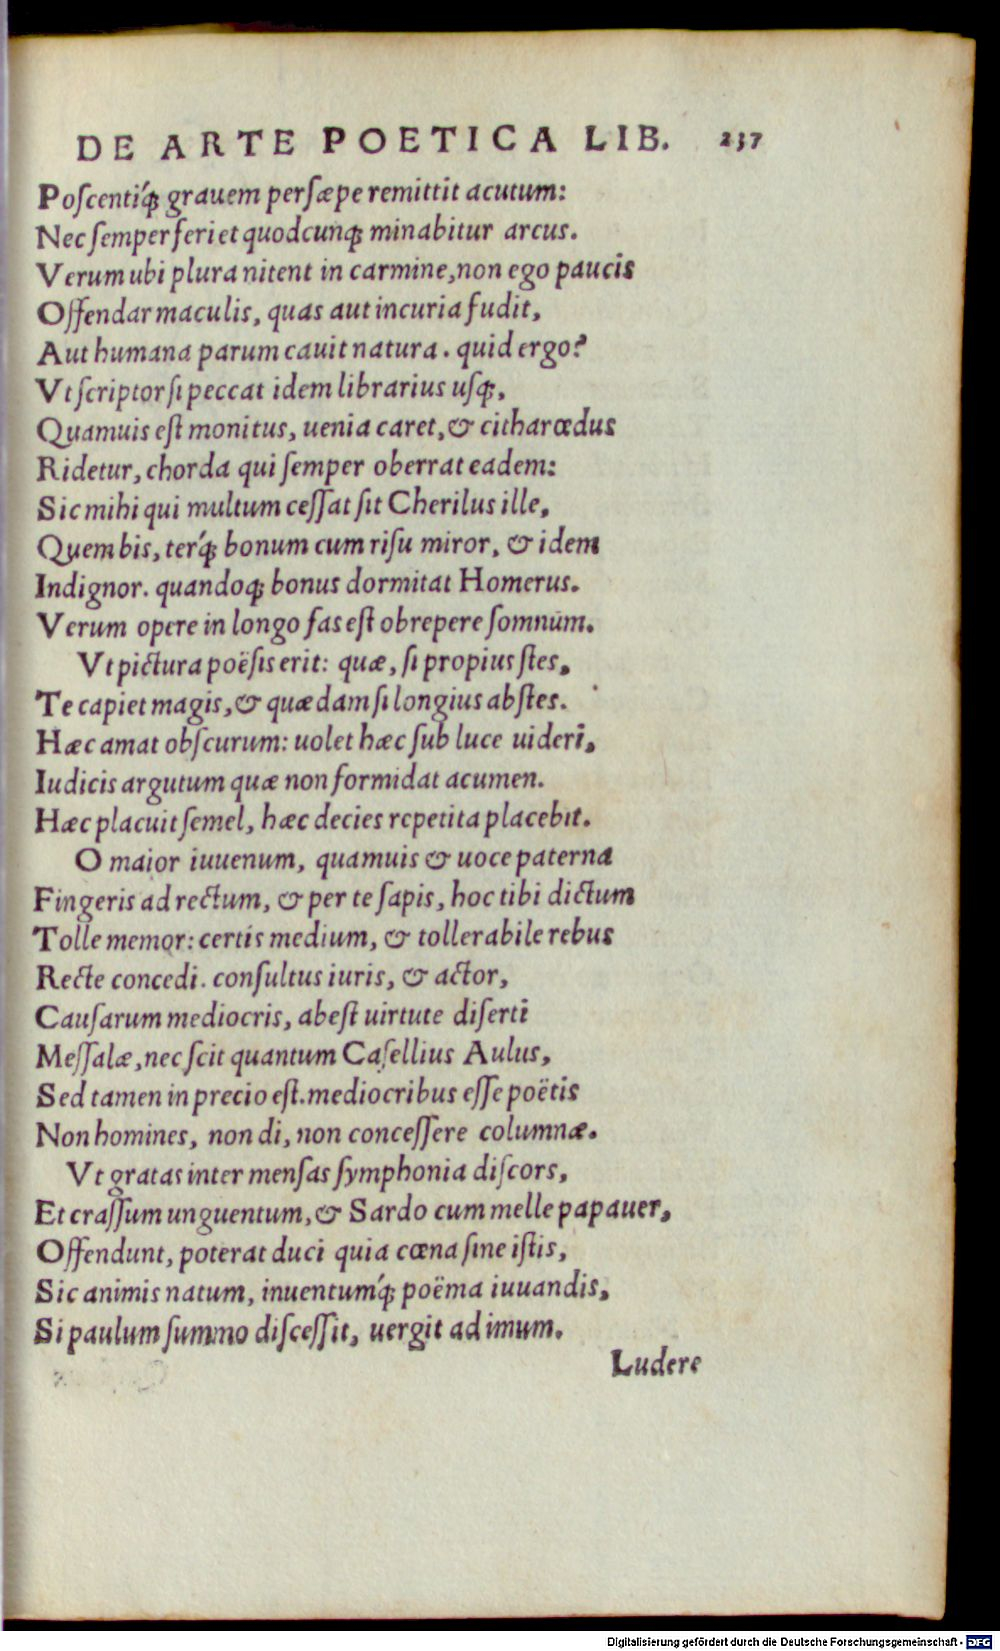 DE ARTE POETICA LIB. 237
Poſcentiq́ꝫ grauem perſæpe remittit acutum:
Nec ſemper feriet quodcunqꝫ minabitur arcus.
Verum ubi plura nitent in carmine, non ego paucis
Offendar maculis, quas aut incuria fudit,
Aut humana parum cauit natura. quid ergo?
Vt ſcriptor ſi peccat idem librarius uſqꝫ,
Quamuis eſt monitus, uenia caret, & citharœdus
Ridetur, chorda qui ſemper oberrat eadem:
Sic mihi qui multum ceſſat ſit Cherilus ille,
Quem bis, terq́ꝫ bonum cum riſu miror, & idem
Indignor. quandoqꝫ bonus dormitat Homerus.
Verum opere in longo fas eſt obrepere ſomnum.
Vt pictura poëſis erit: quæ, ſi propius ſtes,
Te capiet magis, & quædam ſi longius abſtes.
Hæc amat obſcurum: uolet hæc ſub luce uideri,
Iudicis argutum quæ non formidat acumen.
Hæc placuit ſemel, hæc decies repetita placebit.
O maior iuuenum, quamuis & uoce paterna
Fingeris ad rectum, & per te ſapis, hoc tibi dictum
Tolle memor: certis medium, & tollerabile rebus
Recte concedi. conſultus iuris, & actor,
Cauſarum mediocris, abeſt uirtute diſerti
Meſſalæ, nec ſcit quantum Caſellius Aulus,
Sed tamen in precio eſt. mediocribus eſſe poëtis
Non homines, non di, non conceſſere columnæ.
Vt gratas inter menſas ſymphonia diſcors,
Et craſſum unguentum, & Sardo cum melle papauer,
Offendunt, poterat duci quia cœna ſine iſtis,
Sic animis natum, inuentumq́ꝫ poëma iuuandis,
Si paulum ſummo diſceſſit, uergit ad imum.
Ludere
Digitalisierung gefördert durch die Deutsche Forschungsgemeinschaft - DFG